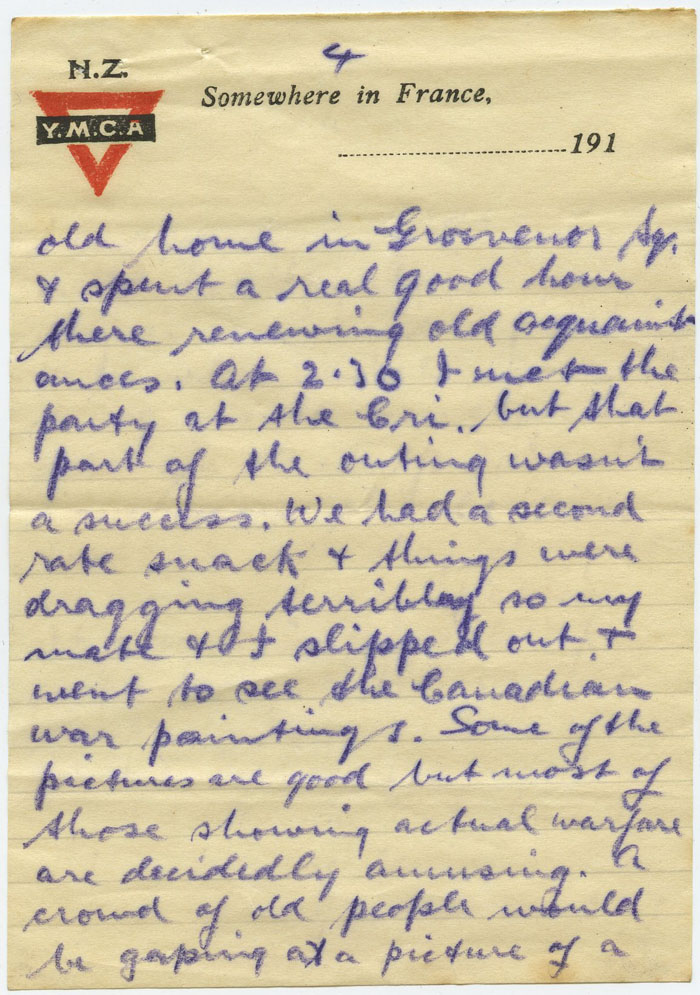 4
N.Z.
Y.M.C.A
Somewhere in France,
191
old home in Grosvenor Sq.
& spent a real good hour
there renewing old acquaint
ances. At 2.30 I met the
party at the Cri. but that
part of the outing wasn't
a success. We had a second
rate snack & things were
dragging terribly so my
mate & I slipped out &
went to see the Canadian
war paintings. Some of the
pictures are good but most of
those showing actual warfare
are decidedly amusing. A
crowd of old people would
be gaping at a picture of a